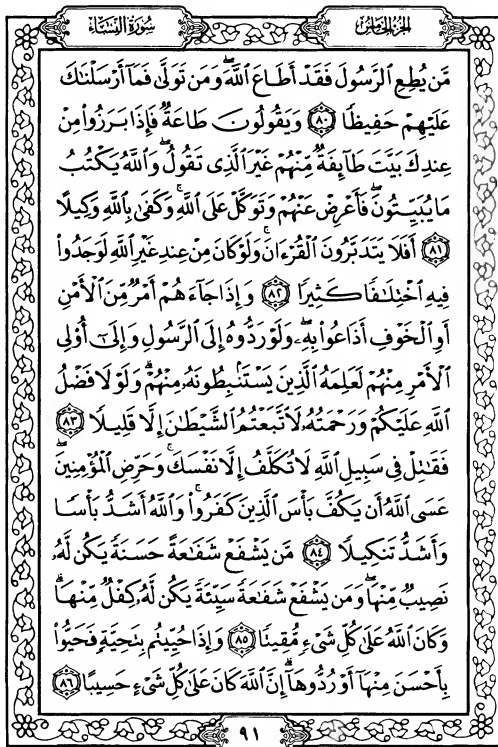 سُورَةُ النِّسَاءِ
الجُزْءُ الخَامِسُ
مَّن يُطِعِ ٱلرَّسُولَ فَقَدْ أَطَاعَ ٱللَّهَ ۖ وَمَن تَوَلَّىٰ فَمَآ أَرْسَلْنَٰكَ
عَلَيْهِمْ حَفِيظًا ﴿٨٠﴾ وَيَقُولُونَ طَاعَةٌ فَإِذَا بَرَزُوا۟ مِنْ
عِندِكَ بَيَّتَ طَآئِفَةٌ مِّنْهُمْ غَيْرَ ٱلَّذِى تَقُولُ ۖ وَٱللَّهُ يَكْتُبُ
مَا يُبَيِّتُونَ ۖ فَأَعْرِضْ عَنْهُمْ وَتَوَكَّلْ عَلَى ٱللَّهِ ۚ وَكَفَىٰ بِٱللَّهِ وَكِيلًا
﴿٨١﴾ أَفَلَا يَتَدَبَّرُونَ ٱلْقُرْءَانَ ۚ وَلَوْ كَانَ مِنْ عِندِ غَيْرِ ٱللَّهِ لَوَجَدُوا۟
فِيهِ ٱخْتِلَٰفًا كَثِيرًا ﴿٨٢﴾ وَإِذَا جَآءَهُمْ أَمْرٌ مِّنَ ٱلْأَمْنِ
أَوِ ٱلْخَوْفِ أَذَاعُوا۟ بِهِۦ ۖ وَلَوْ رَدُّوهُ إِلَى ٱلرَّسُولِ وَإِلَىٰٓ أُو۟لِى
ٱلْأَمْرِ مِنْهُمْ لَعَلِمَهُ ٱلَّذِينَ يَسْتَنۢبِطُونَهُۥ مِنْهُمْ ۗ وَلَوْلَا فَضْلُ
ٱللَّهِ عَلَيْكُمْ وَرَحْمَتُهُۥ لَٱتَّبَعْتُمُ ٱلشَّيْطَٰنَ إِلَّا قَلِيلًا ﴿٨٣﴾
فَقَٰتِلْ فِى سَبِيلِ ٱللَّهِ لَا تُكَلَّفُ إِلَّا نَفْسَكَ ۚ وَحَرِّضِ ٱلْمُؤْمِنِينَ ۖ
عَسَى ٱللَّهُ أَن يَكُفَّ بَأْسَ ٱلَّذِينَ كَفَرُوا۟ ۚ وَٱللَّهُ أَشَدُّ بَأْسًا
وَأَشَدُّ تَنكِيلًا ﴿٨٤﴾ مَّن يَشْفَعْ شَفَٰعَةً حَسَنَةً يَكُن لَّهُۥ
نَصِيبٌ مِّنْهَا ۖ وَمَن يَشْفَعْ شَفَٰعَةً سَيِّئَةً يَكُن لَّهُۥ كِفْلٌ مِّنْهَا ۗ
وَكَانَ ٱللَّهُ عَلَىٰ كُلِّ شَىْءٍ مُّقِيتًا ﴿٨٥﴾ وَإِذَا حُيِّيتُم بِتَحِيَّةٍ فَحَيُّوا۟
بِأَحْسَنَ مِنْهَآ أَوْ رُدُّوهَآ ۗ إِنَّ ٱللَّهَ كَانَ عَلَىٰ كُلِّ شَىْءٍ حَسِيبًا ﴿٨٦﴾
٩١